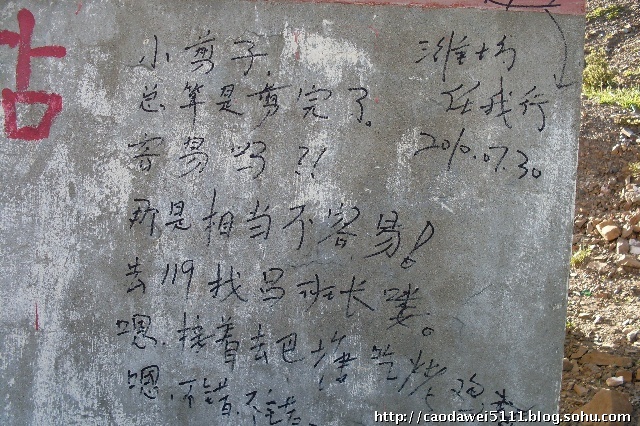 占
小剪子,
总算是剪完了。
容易吗?!
那是相当不容易!
去119找吕班长喽。
嗯.接着去巴塘吃烧鸡去
嗯.不错.不错.
潍坊
任我行
2010.07.30
http://caodawei5111.blog.sohu.com